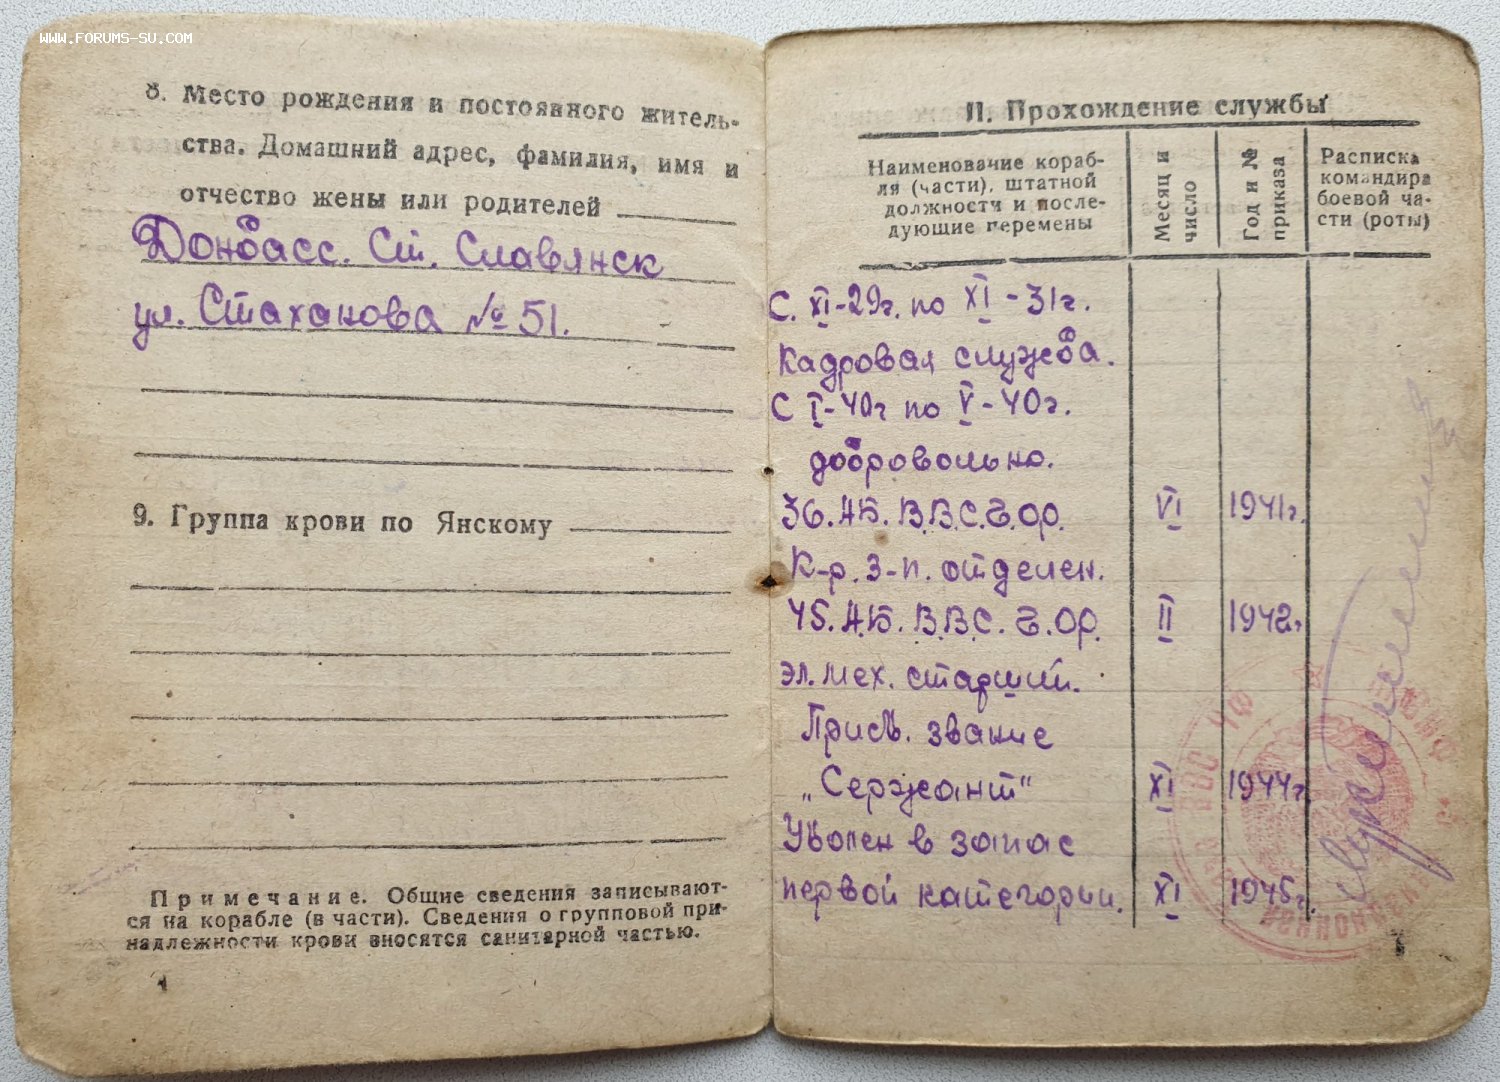 WWW.FORUMS-SU.COM
8. Место рождения и постоянного житель-
ства. Домашний адрес, фамилия, имя и
отчество жены или родителей
Донбасс. Ст. Славянск
ул. Стаханова № 51.
9. Группа крови по Янскому
Примечание. Общие сведения записывают-
ся на корабле (в части). Сведения о групповой при-
надлежности крови вносятся санитарной частью.
II. Прохождение службы
Наименование кораб-
ля (части), штатной
должности и после-
дующие перемены
Месяц и
число
Год и №
приказа
Расписка
командира
боевой ча-
сти (роты)
С. XI-29г. по XI-31г.
Кадровая служба.
С I-40г по V-40г.
добровольно.
36. АБ. В.В.С. Ч.ОР. VI 1941г.
К-р. З-п. отделен.
45. А.Б. В.В.С. Ч.ОР. II 1942г
эл. мех. старший.
Присв. звание
„Сержант" XI 1944г
Уволен в запас
первой категории. XI 1945г.
ВВС ЧФ
ВМФ